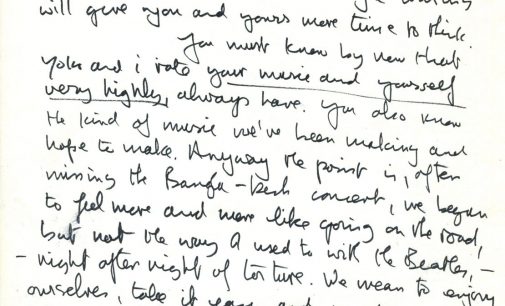 will give you and yours more time to think.
You must know by now that
Yoko and i rate your music and yourself
very highly, always have. you also know
the kind of music we've been making and
hope to make. Anyway the point is, after
missing the Bangla-desh concert, we began
to feel more and more like going on the road,
but not the way I used to with the Beatles, -
- night after night of torture. We mean to enjoy
ourselves, take it easy, and